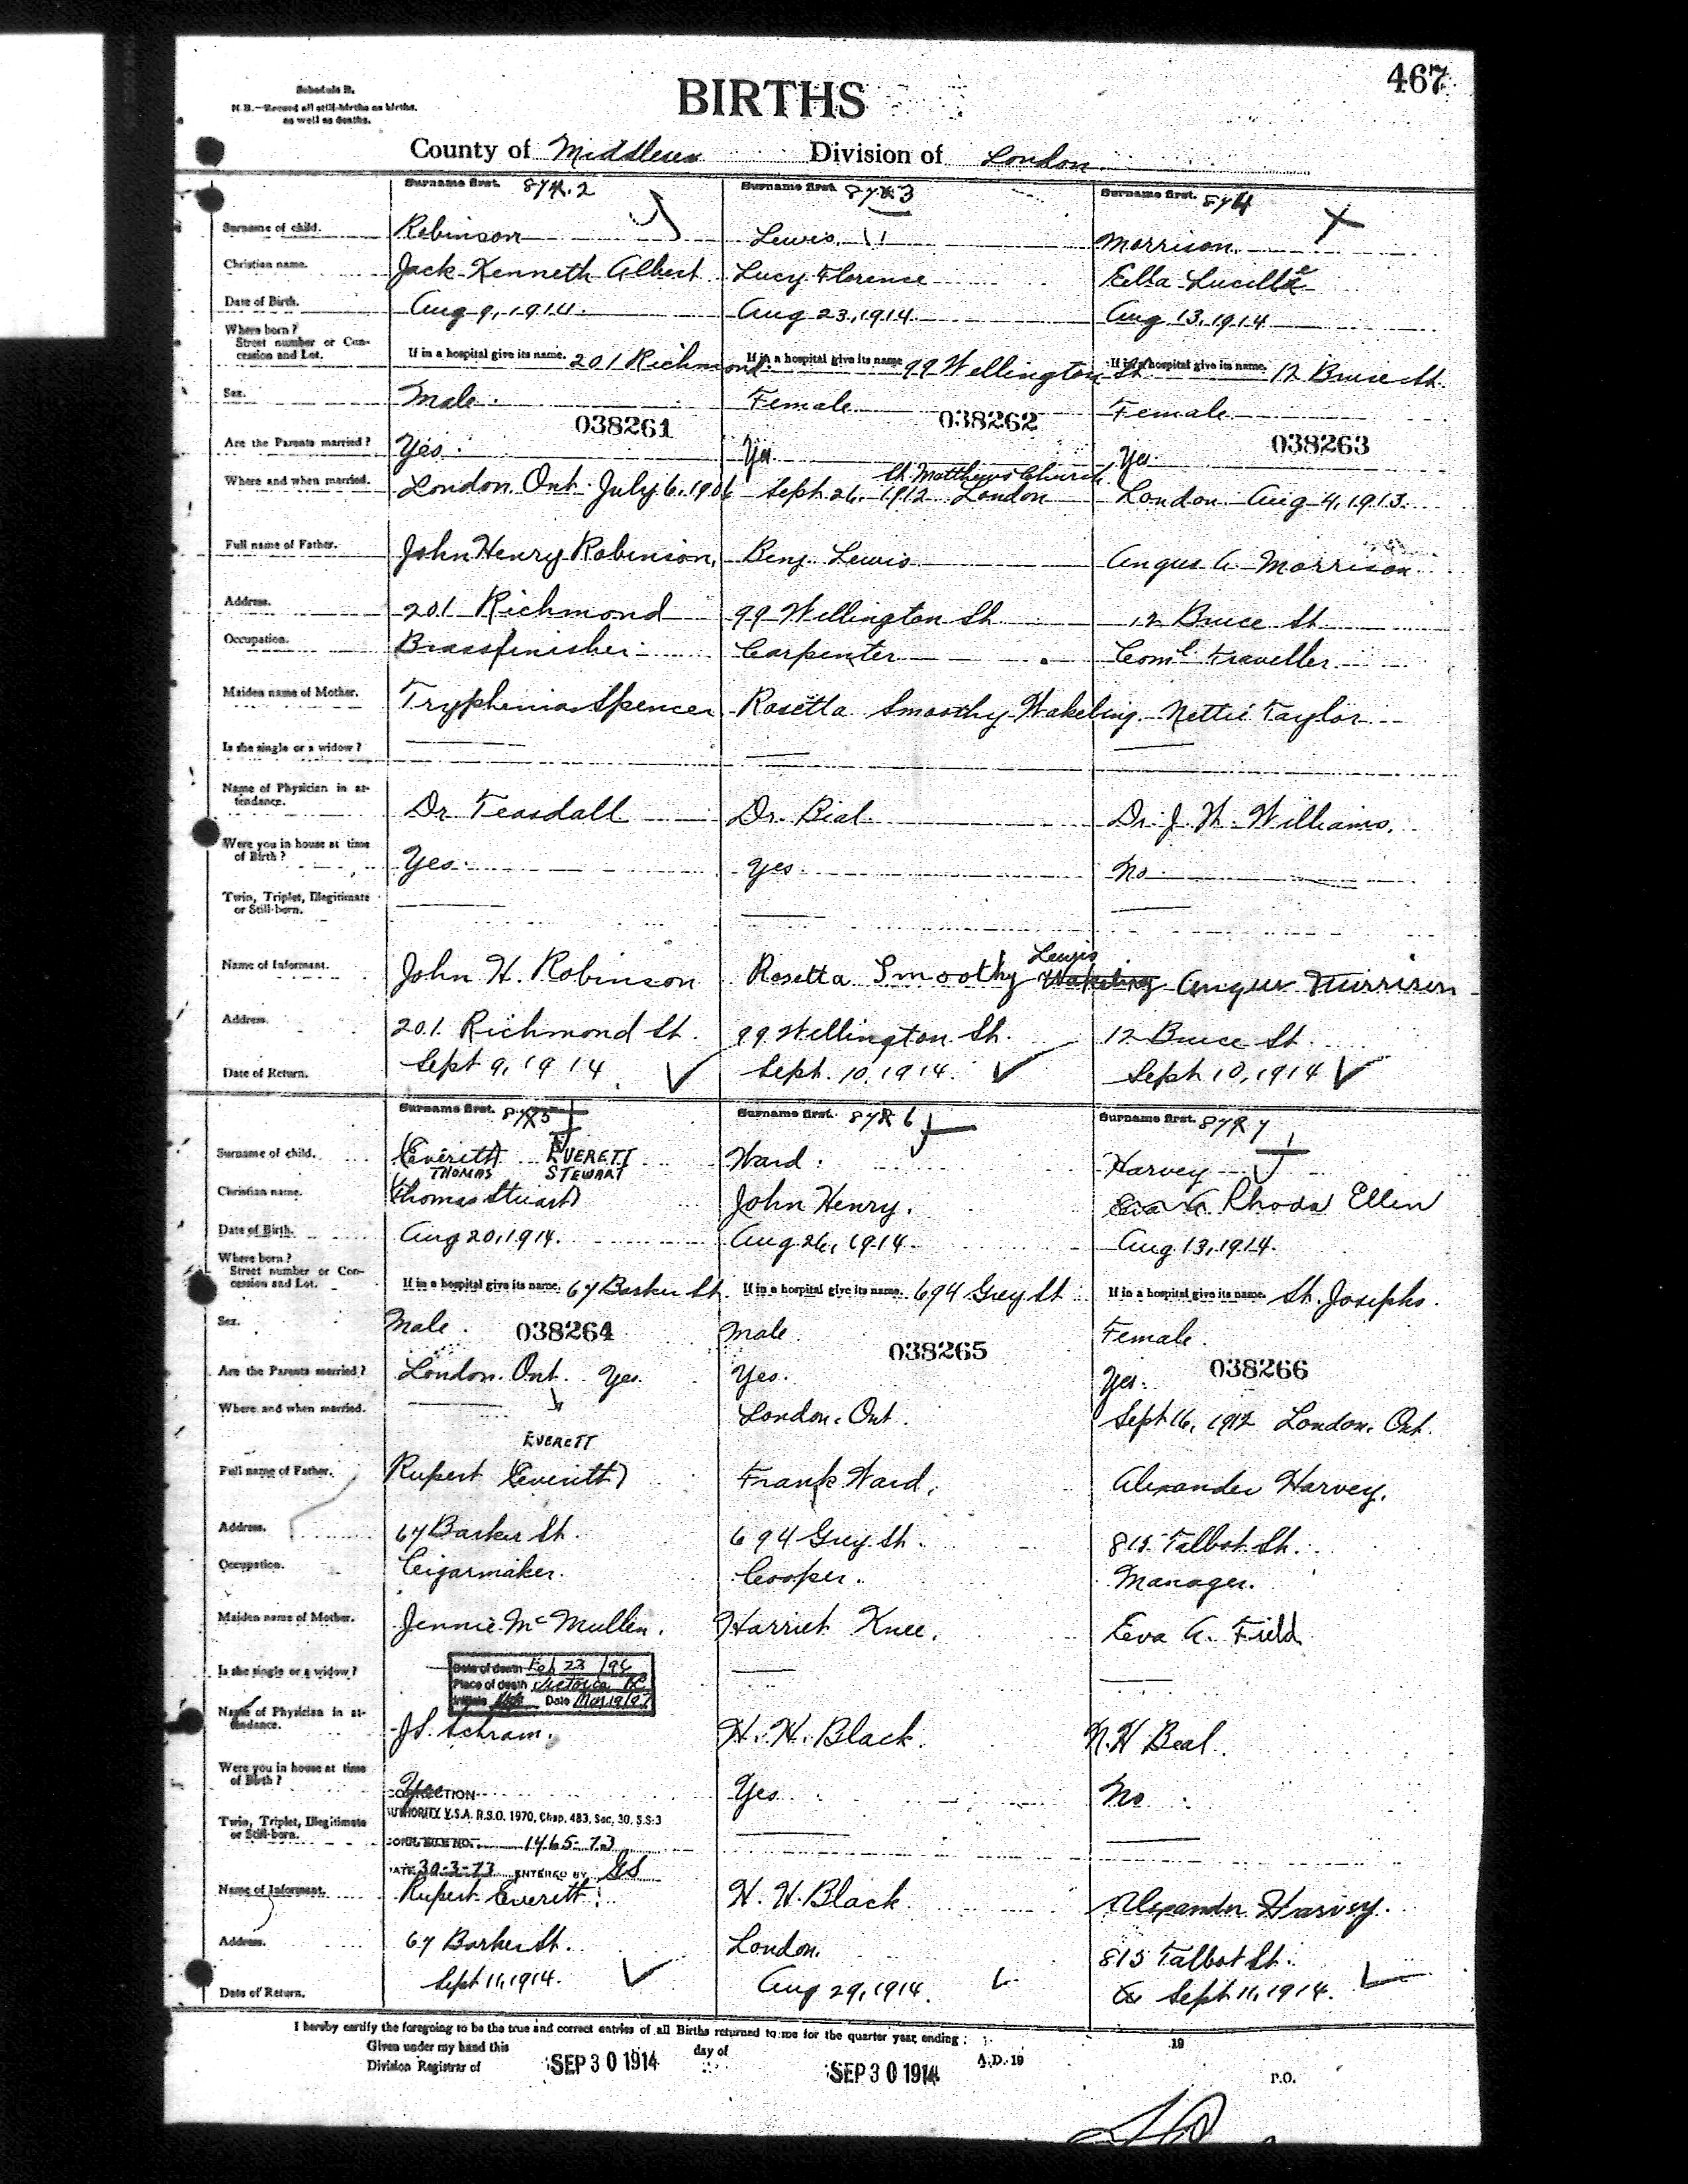 467
Schedule B.
N.B.—Record all still-births as births, as well as deaths.
BIRTHS
County of Middlesex Division of London
Surname first. Surname first. Surname first.
Surname of child. Robinson Lewis Morrison
Christian name. Jack Kenneth Albert Lucy Florence Ella Lucille
Date of Birth. Aug 9, 1914. Aug 23, 1914 Aug 13, 1914
Where born?
Street number or Concession and Lot. If in a hospital give its name. 201 Richmond If in a hospital give its name 99 Wellington St If in a hospital give its name. 12 Bruce St.
Sex. Male. Female Female
038261 038262 038263
Are the Parents married? Yes. Yes. Yes.
Where and when married. London Ont. July 6, 1906 Sept 26, 1912 St Matthews Church London London Aug 4, 1913.
Full name of Father. John Henry Robinson, Benj. Lewis Angus A Morrison
Address. 201 Richmond 99 Wellington St 12 Bruce St.
Occupation. Brassfinisher Carpenter Coml. Traveller
Maiden name of Mother. Tryphenia Spencer Rosetta Smoothy Wakeling Nettie Taylor
Is she single or a widow?
Name of Physician in attendance. Dr Teasdall Dr. Dr. J. H. Williams.
Were you in house at time of Birth? Yes. Yes. No
Twin, Triplet, Illegitimate or Still-born.
Name of Informant. John H. Robinson Rosetta Smoothy Wakeling Lewis Angus Morrison
Address. 201 Richmond St. 99 Wellington St. 12 Bruce St.
Date of Return. Sept 9, 1914. Sept. 10, 1914. Sept 10, 1914
Surname first. Surname first. Surname first.
Surname of child. (Everitt) EVERETT Ward. Harvey
THOMAS STEWART
Christian name. (Thomas Stuart) John Henry. Eva A. Rhoda Ellen
Date of Birth. Aug 20, 1914. Aug 26, 1914. Aug 13, 1914.
Where born?
Street number or Concession and Lot. If in a hospital give its name. 67 Barker St. If in a hospital give its name. 694 Grey St If in a hospital give its name. St. Josephs.
Sex. Male. Male Female.
038264 038265 038266
Are the Parents married? London. Ont. Yes. Yes. Yes.
Where and when married. London, Ont. Sept 16, 1912 London, Ont.
EVERETT
Full name of Father. Rupert (Everitt) Frank Ward. Alexander Harvey.
Address. 67 Barker St. 694 Grey St. 815 Talbot St.
Occupation. Cigarmaker. Cooper. Manager.
Maiden name of Mother. Jennie McMullen. Harriet Knee. Eva A. Field
Is she single or a widow?
Date of death Feb 23
Place of death Victoria BC
Initials Date
Name of Physician in attendance. J.S. Schram. H. H. Black. N. H Beal.
Were you in house at time of Birth? Yes Yes No
CORRECTION
AUTHORITY V.S.A. R.S.O. 1970, Chap. 483, Sec. 30, S.S:3
Twin, Triplet, Illegitimate or Still-born.
1465-73
DATE 30-3-73 ENTERED BY GS
Name of Informant. Rupert Everitt. H. H. Black Alexander Harvey.
Address. 67 Barker St. London. 815 Talbot St.
Date of Return. Sept 11, 1914. Aug 29, 1914. Sept 11, 1914.
I hereby certify the foregoing to be the true and correct entries of all Births returned to me for the quarter year, ending 19
Given under my hand this SEP 30 1914 day of SEP 30 1914 A.D. 19
Division Registrar of P.O.